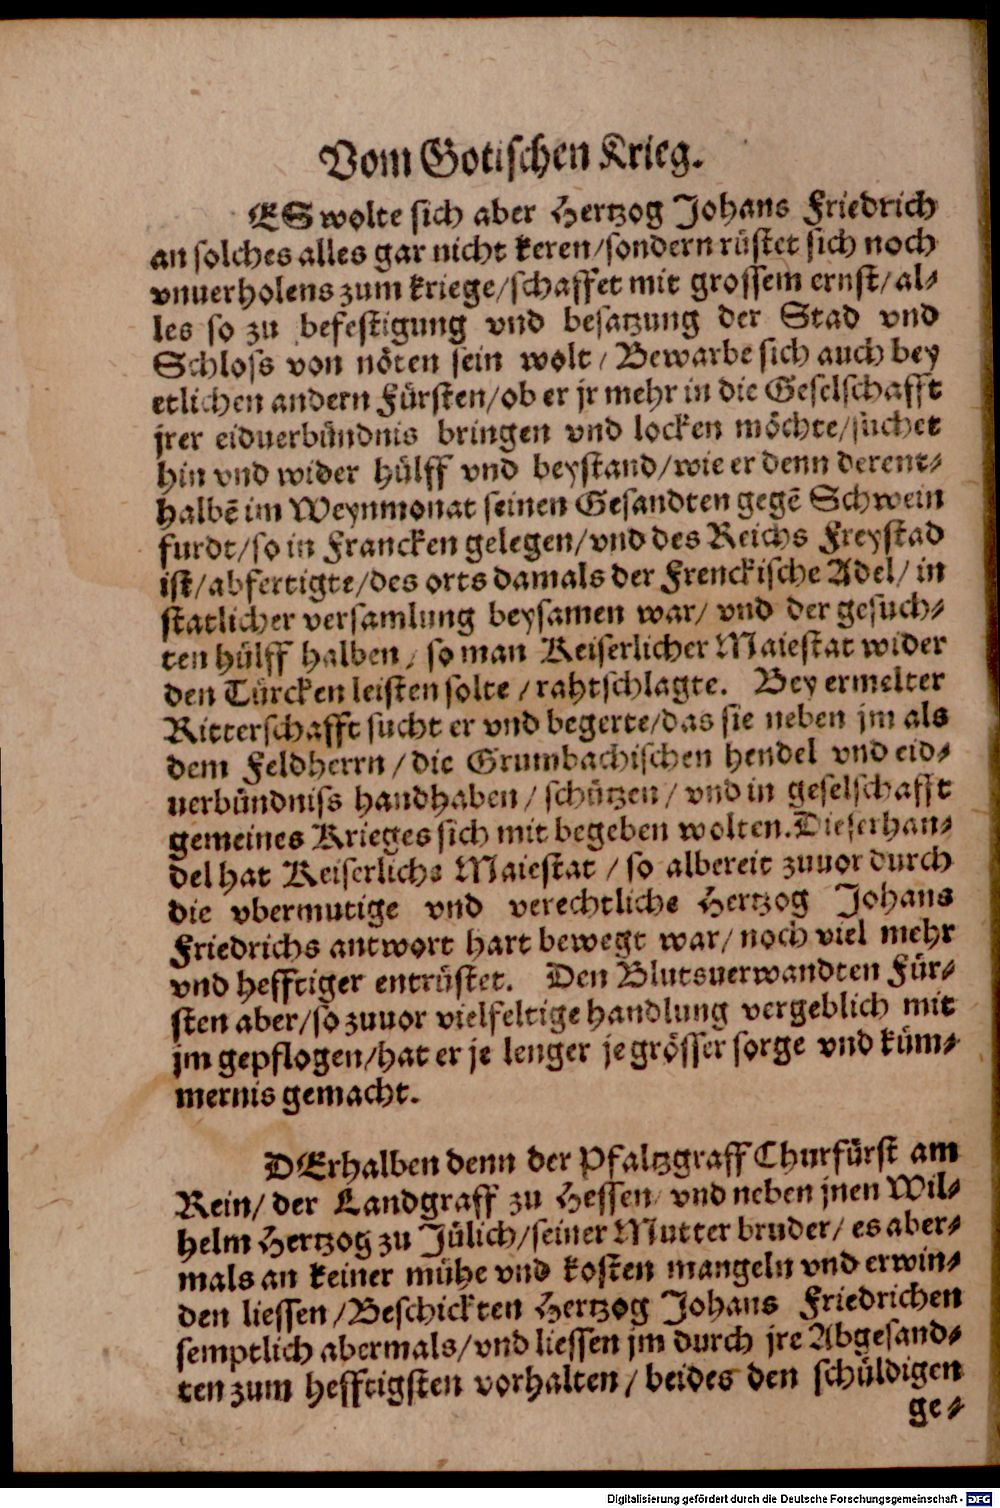 Vom Gotischen Krieg.
ES wolte sich aber Hertzog Johans Friedrich
an solches alles gar nicht keren/sondern rüstet sich noch
vnuerholens zum kriege/schaffet mit grossem ernst/al-
les so zu befestigung vnd besatzung der Stad vnd
Schloss von nöten sein wolt/Bewarbe sich auch bey
etlichen andern Fürsten/ob er jr mehr in die Geselschafft
jrer eiduerbündnis bringen vnd locken möchte/suchet
hin vnd wider hülff vnd beystand/wie er denn derent-
halbē im Weynmonat seinen Gesandten gegē Schwein
furdt/so in Francken gelegen/vnd des Reichs Freystad
ist/abfertigte/des orts damals der Frenckische Adel/in
statlicher versamlung beysamen war/vnd der gesuch-
ten hülff halben/so man Keiserlicher Maiestat wider
den Türcken leisten solte/rahtschlagte. Bey ermelter
Ritterschafft sucht er vnd begerte/das sie neben jm als
dem Feldherrn/die Grumbachischen hendel vnd eid-
uerbündniss handhaben/schützen/vnd in geselschafft
gemeines Krieges sich mit begeben wolten. Dieser han-
del hat Keiserliche Maiestat/so albereit zuuor durch
die vbermutige vnd verechtliche Hertzog Johans
Friedrichs antwort hart bewegt war/noch viel mehr
vnd hefftiger entrüstet. Den Blutsuerwandten Für-
sten aber/so zuuor vielfeltige handlung vergeblich mit
jm gepflogen/hat er je lenger je grösser sorge vnd küm-
mernis gemacht.
DErhalben denn der Pfaltzgraff Churfürst am
Rein/der Landgraff zu Hessen/vnd neben jnen Wil-
helm Hertzog zu Jülich/seiner Mutter bruder/es aber-
mals an keiner mühe vnd kosten mangeln vnd erwin-
den liessen/Beschickten Hertzog Johans Friedrichen
semptlich abermals/vnd liessen jm durch jre Abgesand-
ten zum hefftigsten vorhalten/beides den schüldigen
ge-
Digitalisierung gefördert durch die Deutsche Forschungsgemeinschaft - DFG